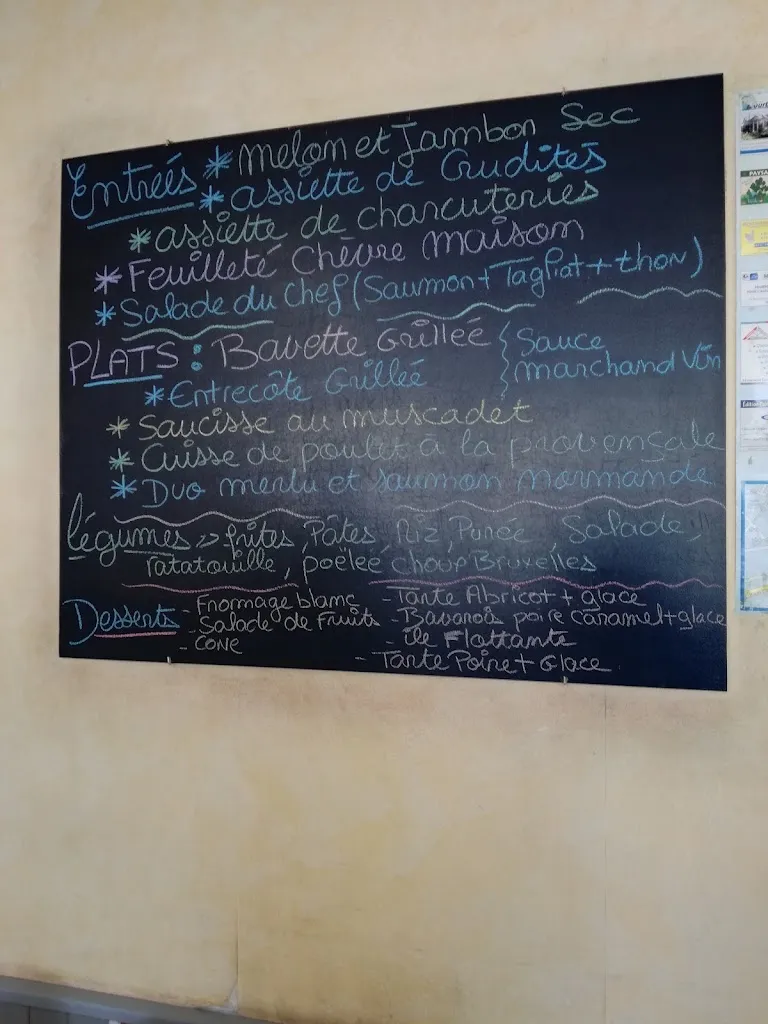 Entreés * melon et Jambon Sec
* assiette de Crudités
* assiette de charcuteries
* Feuilleté Chèvre maison
* Salade du Chef (Saumon + Tagliat + thon)
PLATS : Bavette Grilleé { Sauce
marchand Vin
* Entrecôte Grilleé
* Saucisse au muscadet
* Cuisse de poulet à la provençale
* Duo merlu et saumon normande
légumes => frites, Pâtes, Riz, Purée, Salade,
ratatouille, poëlee choup Bruxelles
Desserts - Fromage blanc - Tarte Abricot + glace
- Salade de Fruits - Bavarois poire caramel + glace
- Cone - île Flottante
- Tarte Poire + Glace
PAYSA